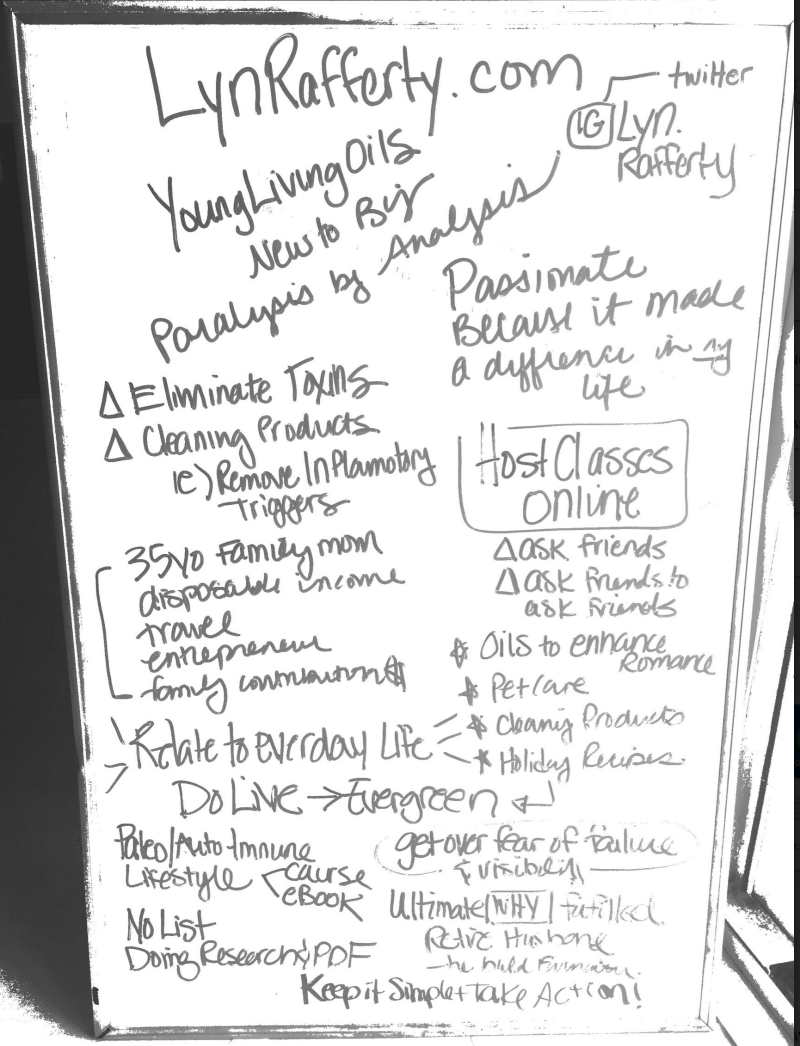 LynRafferty.com
twitter
IG Lyn.
Rafferty
YoungLivingOils
New to Biz
Paralysis by Analysis
Passionate
Because it made
a diffrence in my
life
Δ Eliminate Toxins
Δ Cleaning Products
ie) Remove Inflamotory
Triggers
Host Classes
Online
35yo Family mom
disposable income
travel
entrepreneur
family contribution $
Δ ask friends
Δ ask friends to
ask friends
* Oils to enhance
Romance
* Pet Care
* Cleaning Products
* Holiday Recipes.
Relate to everday Life
Do Live → Evergreen
Paleo/Auto-Immune
Lifestyle < course
eBook
No List
Doing Research & PDF
get over fear of failure
& visibility
Ultimate WHY fulfilled
Retire Husband
he build
Keep it Simple + Take Action!